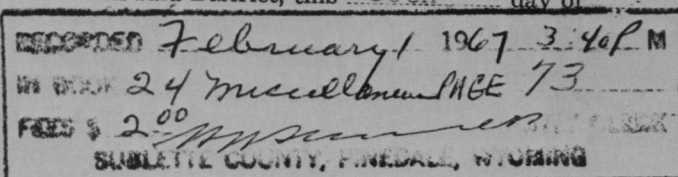 District, this day of
RECORDED February 1 1967 3:40P M
IN BOOK 24 Miscellaneous PAGE 73
FEES $ 2.00 CLERK
SUBLETTE COUNTY, PINEDALE, WYOMING